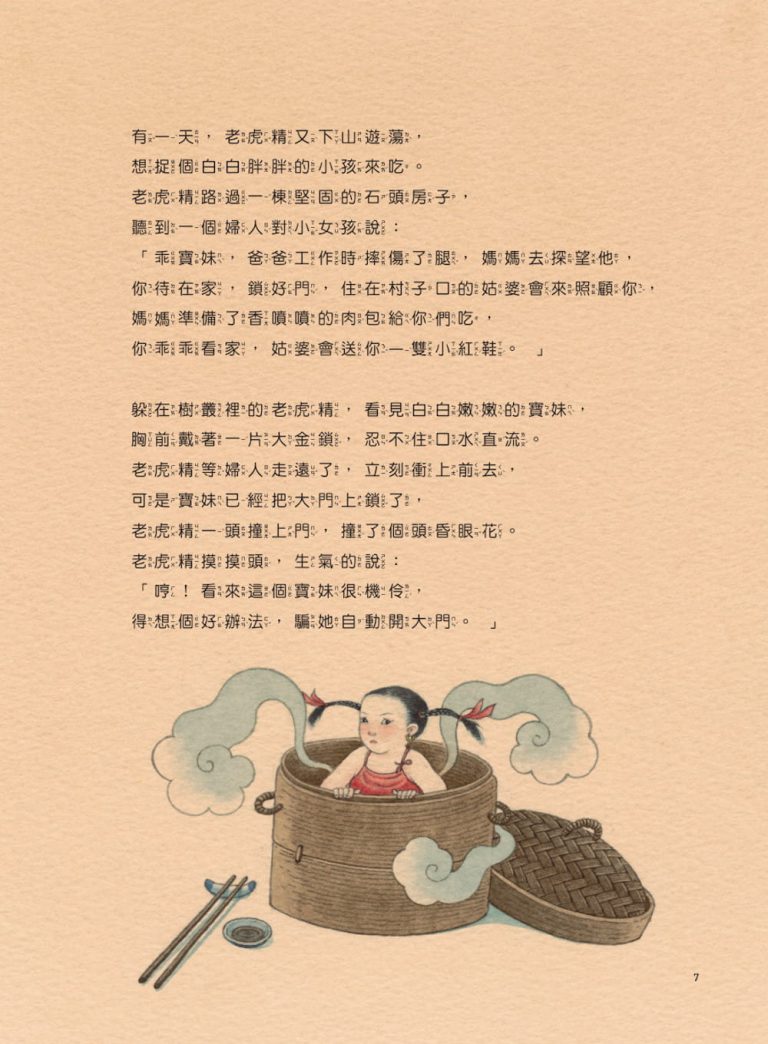 有一天，老虎精又下山遊蕩，
想捉個白白胖胖的小孩來吃。
老虎精路過一棟堅固的石頭房子，
聽到一個婦人對小女孩說：
「乖寶妹，爸爸工作時摔傷了腿，媽媽去探望他，
你待在家，鎖好門，住在村子口的姑婆會來照顧你，
媽媽準備了香噴噴的肉包給你們吃，
你乖乖看家，姑婆會送你一雙小紅鞋。」
躲在樹叢裡的老虎精，看見白白嫩嫩的寶妹，
胸前戴著一片大金鎖，忍不住口水直流。
老虎精等婦人走遠了，立刻衝上前去，
可是寶妹已經把大門上鎖了，
老虎精一頭撞上門，撞了個頭昏眼花。
老虎精摸摸頭，生氣的說：
「哼！看來這個寶妹很機伶，
得想個好辦法，騙她自動開大門。」
7